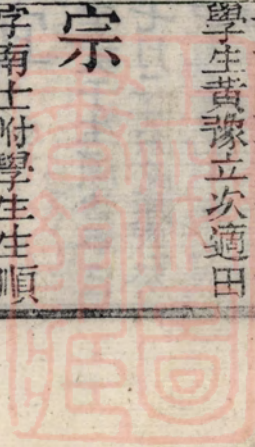 學生黃豫立次適田
宗
字南士附學生生順